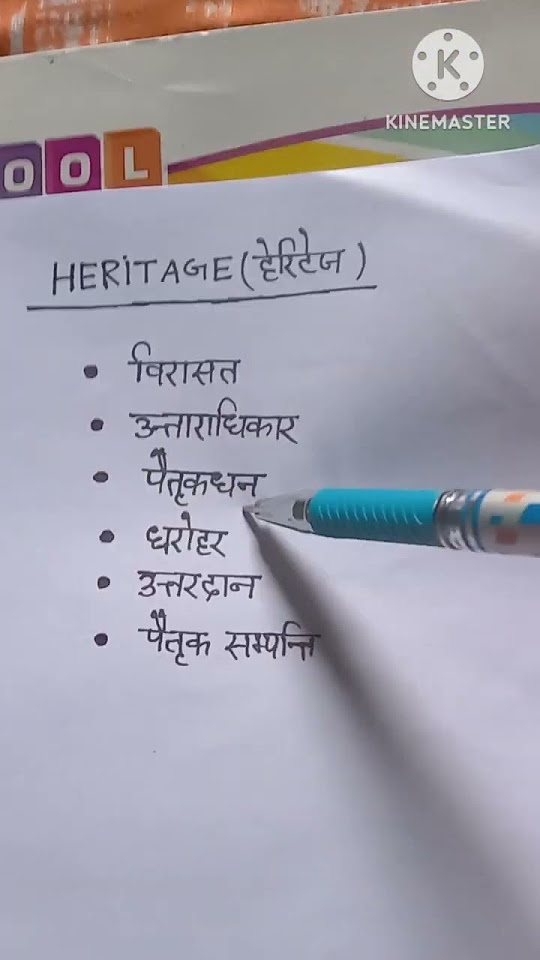 KINEMASTER
OOL
HERITAGE (हेरिटेज)
• विरासत
• उत्ताराधिकार
• पैतृकधन
• धरोहर
• उत्तरदान
• पैतृक सम्पत्ति